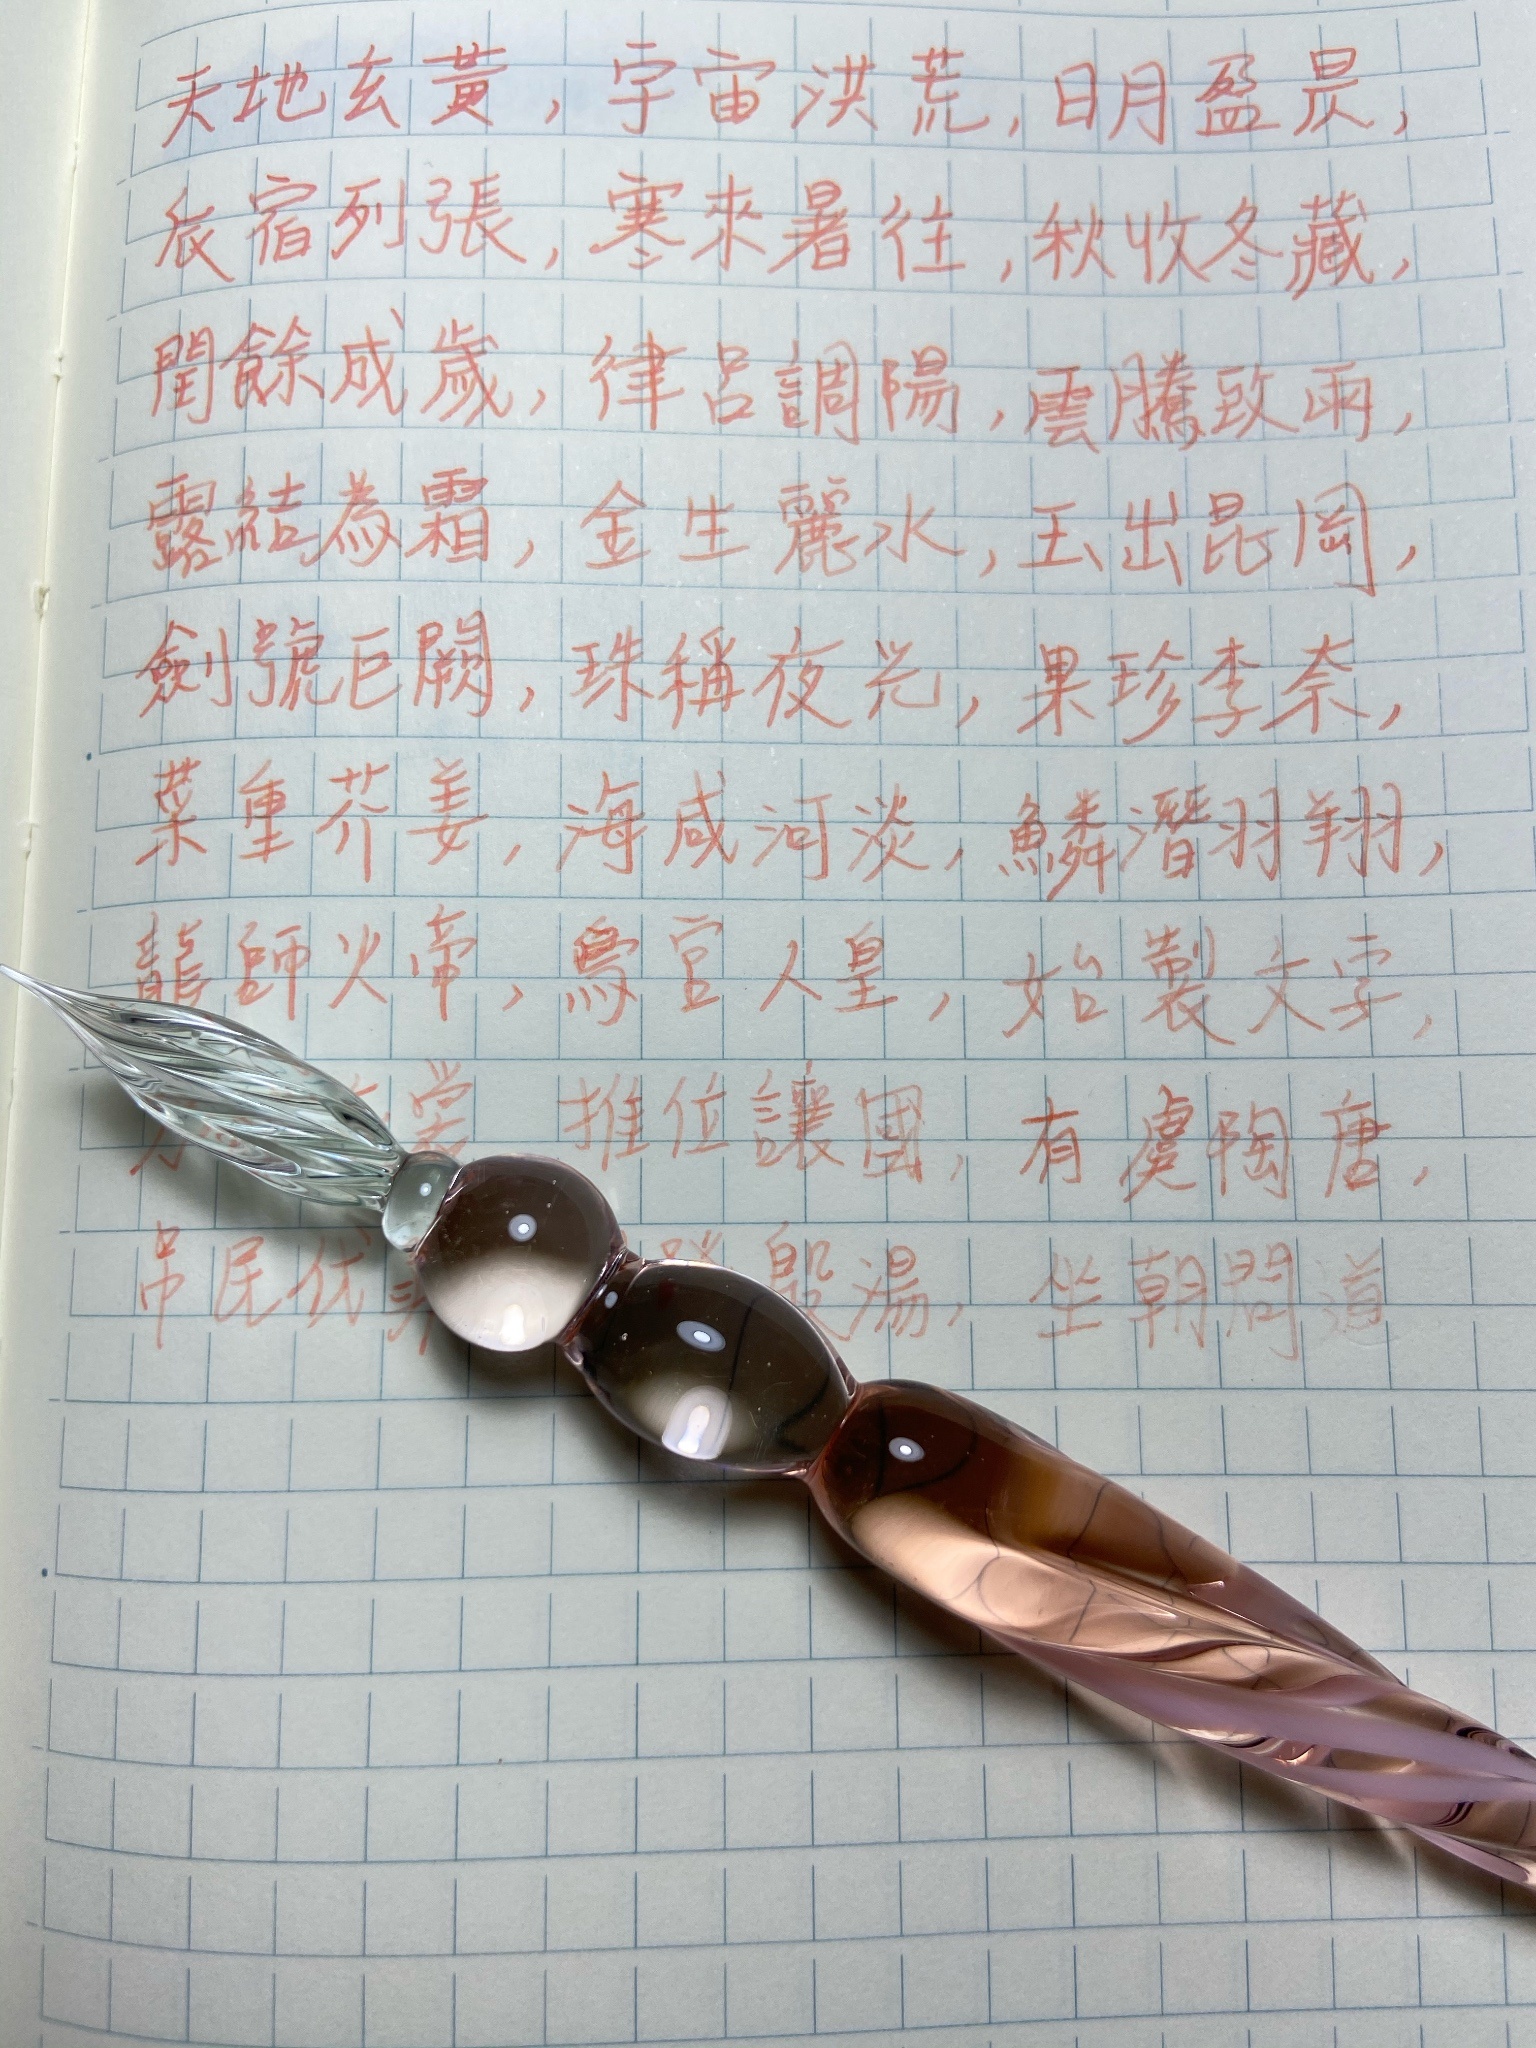 天地玄黃，宇宙洪荒，日月盈昃，
辰宿列張，寒來暑往，秋收冬藏，
閏餘成歲，律呂調陽，雲騰致雨，
露結為霜，金生麗水，玉出昆岡，
劍號巨闕，珠稱夜光，果珍李奈，
菜重芥姜，海咸河淡，鱗潛羽翔，
龍師火帝，鳥官人皇，始製文字，
裳 推位讓國，有虞陶唐，
吊民伐 殷湯，坐朝問道